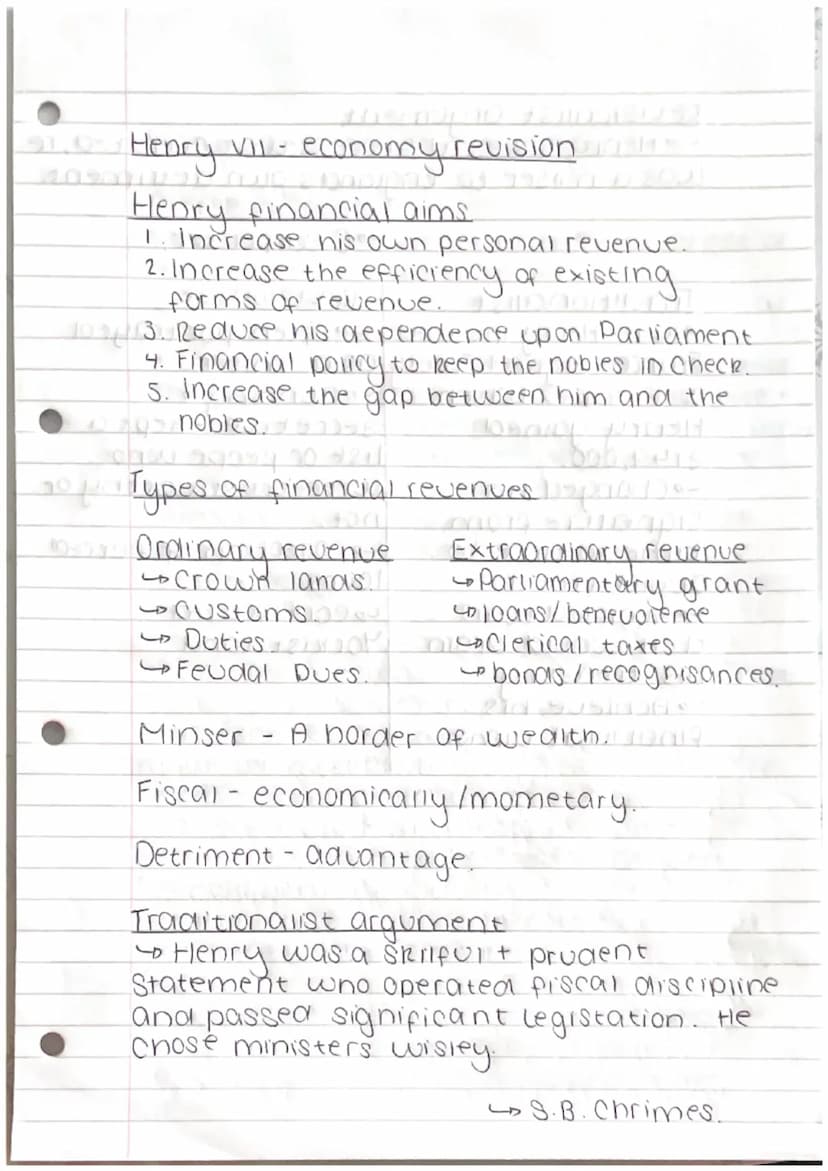 Henry VII - economy revision
Henry financial aims
1. Increase his own personal revenue.
2. Increase the efficiency of existing
forms of revenue.
3. Reduce his dependence upon Parliament
4. Financial policy to keep the nobles in check.
5. Increase the gap between him and the
nobles.
Types of financial revenues
Ordinary revenue
↪ Crown lands.
↪ Customs.
↪ Duties.
↪ Feudal Dues.
Extraordinary revenue
↪ Parliamentary grant
↪ loans/benevolence
↪ Clerical taxes
↪ bonds/recognisances.
Minser - A horder of wealth.
Fiscal - economically/mometary.
Detriment - advantage.
Traditionalist argument
↪ Henry was a skilful + prudent
Statement who operated fiscal discipline
and passed significant legistation. He
chose ministers wisley.
↪ S.B. Chrimes.